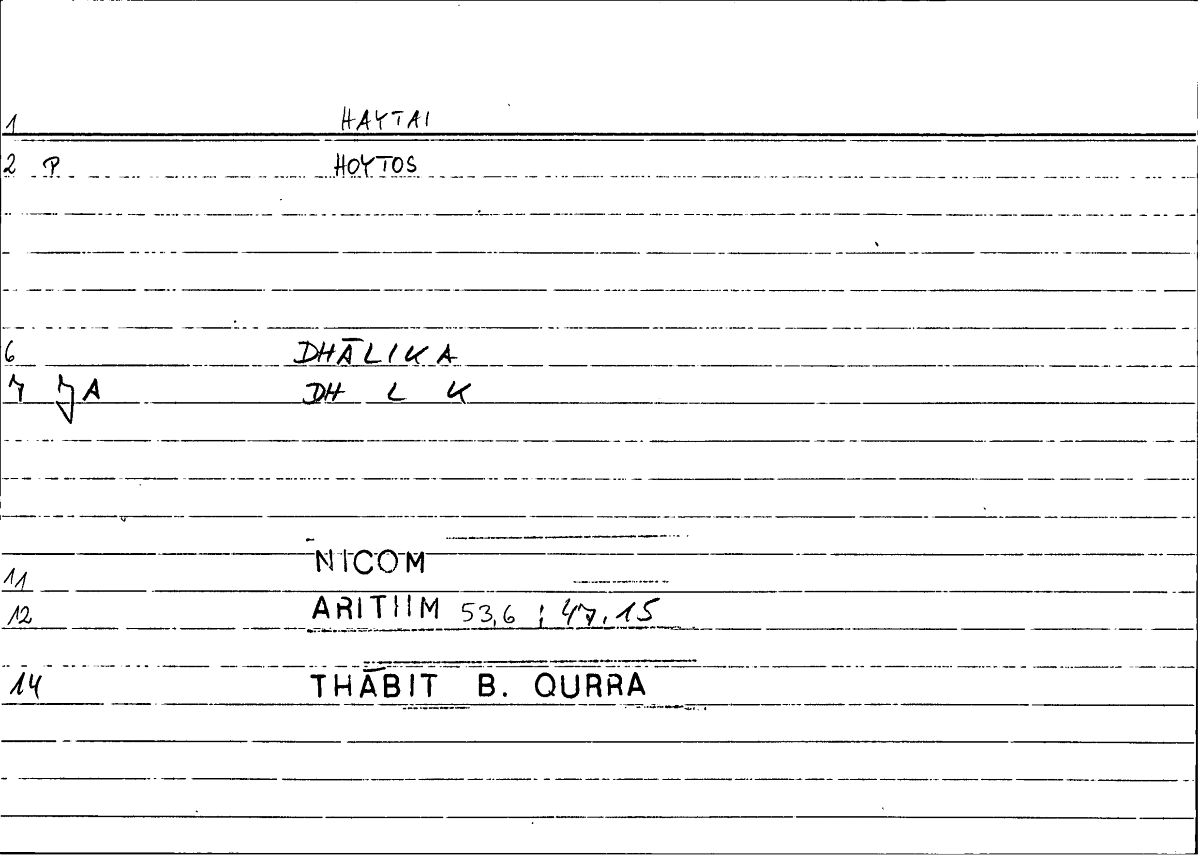 1 HAYTAI
2 P HOYTOS
6 DHĀLIKA
7 JA DH L K
11 NICOM
12 ARITHM 53,6 ; 47,15
14 THĀBIT B. QURRA